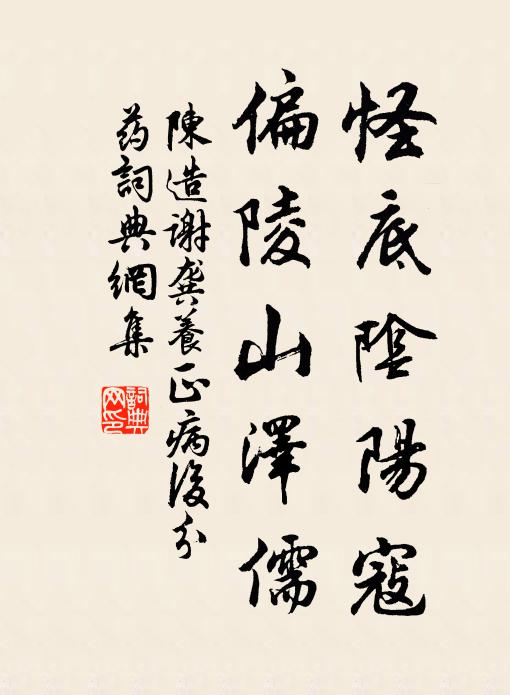 怪底陰陽寇
偏陵山澤儒
陳造謝龔養正病後分
药詞典網集
詞典
网印